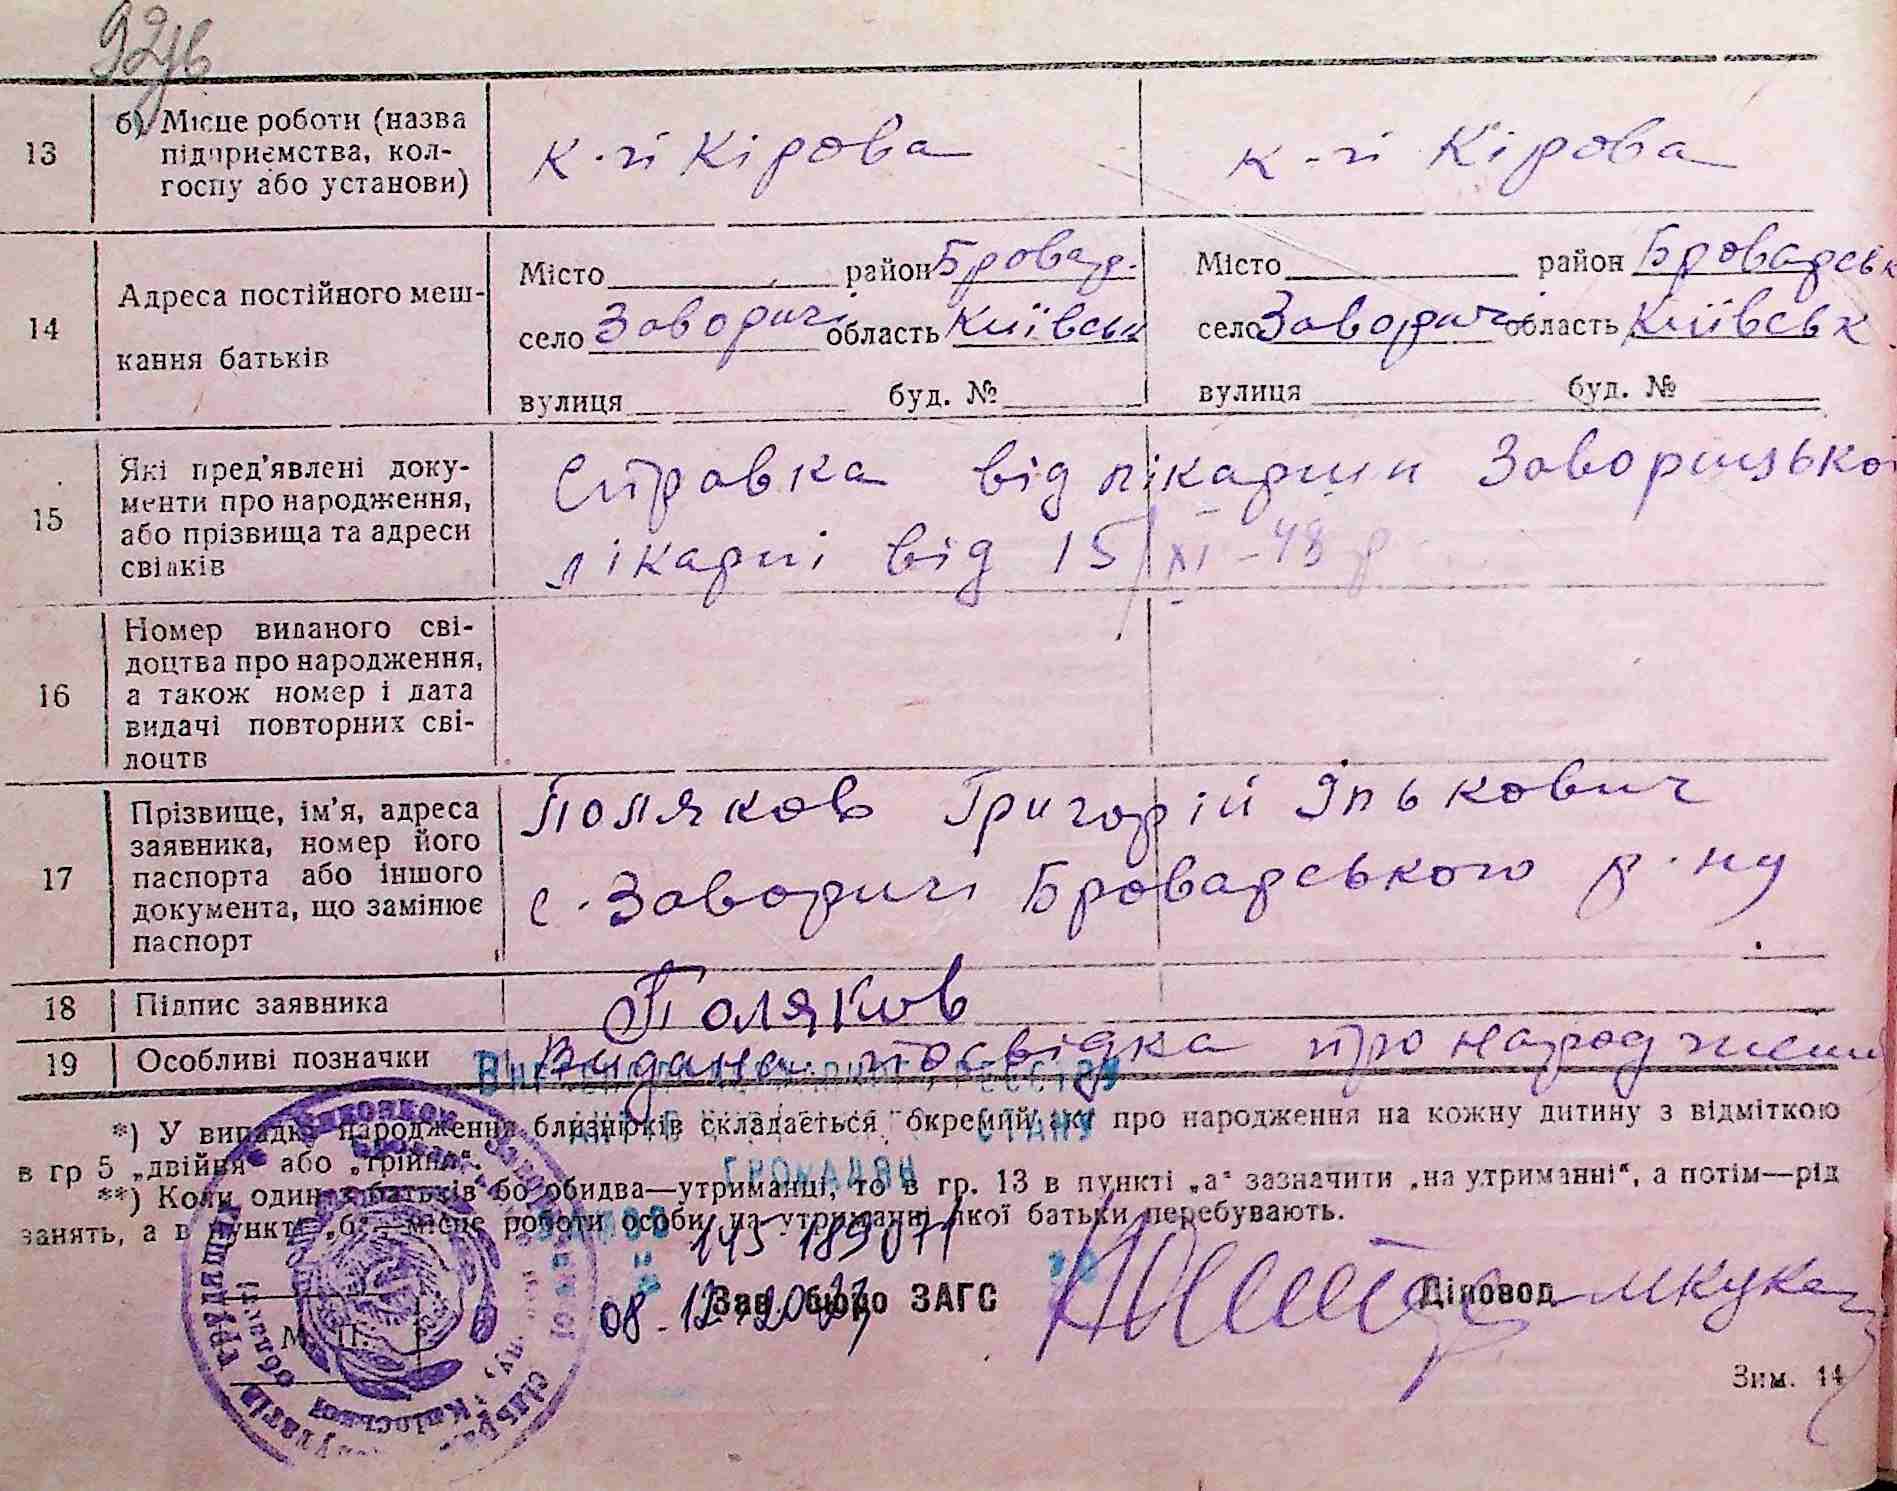 92зв
13 б) Місце роботи (назва
підприємства, кол-
госпу або установи)
к-п Кірова к-п Кірова
14 Адреса постійного меш-
кання батьків
Місто район Бровар.
село Заворичі область Київськ
вулиця буд. №
Місто район Броварськ
село Заворичі область Київськ
вулиця буд. №
15 Які пред'явлені доку-
менти про народження,
або прізвища та адреси
свідків
Справка від лікарии Заворицької
лікарні від 15/XI-48 р
16 Номер виданого сві-
доцтва про народження,
а також номер і дата
видачі повторних сві-
доцтв
17 Прізвище, ім'я, адреса
заявника, номер його
паспорта або іншого
документа, що замінює
паспорт
Поляков Григорій Ількович
с. Заворичі Броварського р-ну
18 Підпис заявника Поляков
19 Особливі позначки Видана посвідка про народження
*) У випадку народження близнюків складається окремий акт про народження на кожну дитину з відміткою
в гр 5 „двійня“ або „трійня“.
**) Коли один з батьків бо обидва—утриманці, то в гр. 13 в пункті „а“ зазначити „на утриманні“, а потім—рід
занять, а в пункті „б“—місце роботи особи, на утриманні якої батьки перебувають.
СТАНУ
ГРОМАДЯН
08.12.2023
Зав. бюро ЗАГС Діловод
М. П.
Київської області
Зим. 14